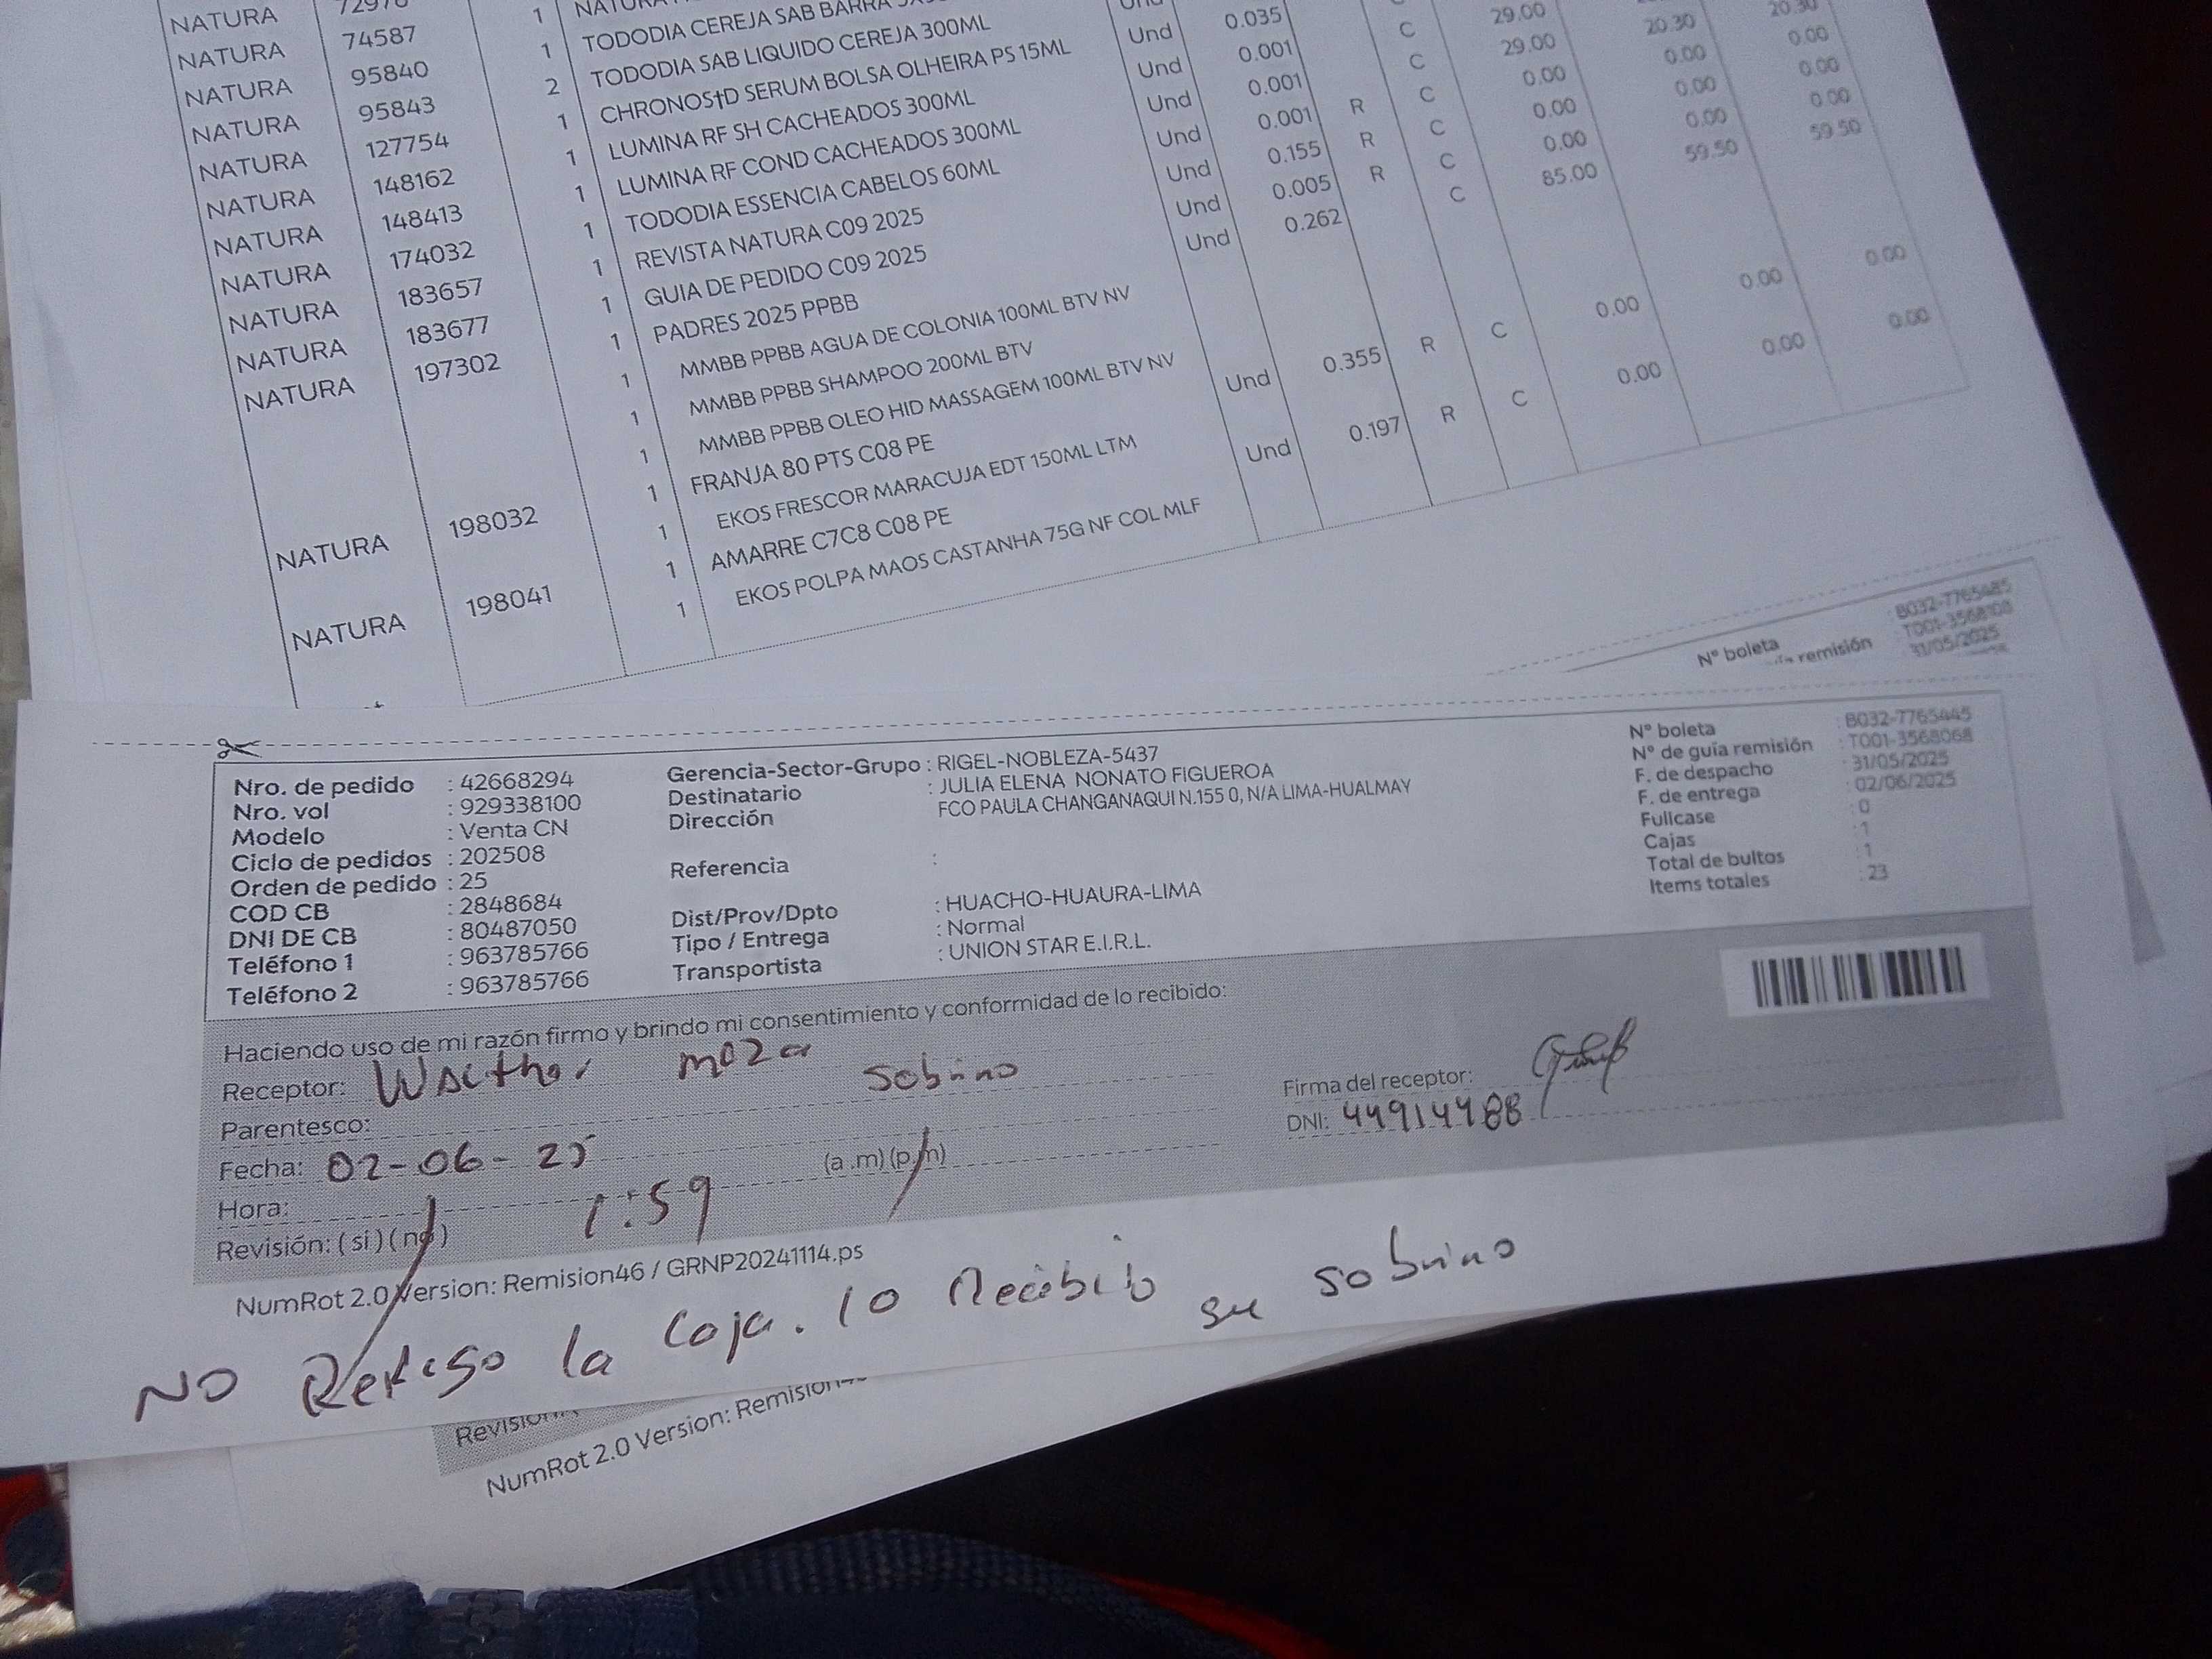 NATURA
NATURA 74587 1 TODODIA CEREJA SAB BARRA
NATURA 95840 2 TODODIA SAB LIQUIDO CEREJA 300ML Und 0.035 C 29.00 20.30 20.30
NATURA 95843 1 CHRONOS†D SERUM BOLSA OLHEIRA PS 15ML Und 0.001 C 29.00 0.00 0.00
NATURA 127754 1 LUMINA RF SH CACHEADOS 300ML Und 0.001 R C 0.00 0.00 0.00
NATURA 148162 1 LUMINA RF COND CACHEADOS 300ML Und 0.001 R C 0.00 0.00 0.00
NATURA 148413 1 TODODIA ESSENCIA CABELOS 60ML Und 0.155 R C 0.00 59.50 59.50
NATURA 174032 1 REVISTA NATURA C09 2025 Und 0.005 C 85.00
NATURA 183657 1 GUIA DE PEDIDO C09 2025 Und 0.262
NATURA 183677 1 PADRES 2025 PPBB
NATURA 197302 1 MMBB PPBB AGUA DE COLONIA 100ML BTV NV
1 MMBB PPBB SHAMPOO 200ML BTV
1 MMBB PPBB OLEO HID MASSAGEM 100ML BTV NV
NATURA 198032 1 FRANJA 80 PTS C08 PE Und 0.355 R C 0.00 0.00 0.00
1 EKOS FRESCOR MARACUJA EDT 150ML LTM
NATURA 198041 1 AMARRE C7C8 C08 PE Und 0.197 R C 0.00 0.00 0.00
1 EKOS POLPA MAOS CASTANHA 75G NF COL MLF
N° boleta
remisión
31/05/2025
Nro. de pedido : 42668294
Nro. vol : 929338100
Modelo : Venta CN
Ciclo de pedidos : 202508
Orden de pedido : 25
COD CB : 2848684
DNI DE CB : 80487050
Teléfono 1 : 963785766
Teléfono 2 : 963785766
Gerencia-Sector-Grupo : RIGEL-NOBLEZA-5437
Destinatario : JULIA ELENA NONATO FIGUEROA
Dirección FCO PAULA CHANGANAQUI N.155 0, N/A LIMA-HUALMAY
Referencia :
Dist/Prov/Dpto : HUACHO-HUAURA-LIMA
Tipo / Entrega : Normal
Transportista : UNION STAR E.I.R.L.
N° boleta : B032-7765445
N° de guía remisión : T001-3568068
F. de despacho : 31/05/2025
F. de entrega : 02/06/2025
Fullcase : 0
Cajas : 1
Total de bultos : 1
Items totales : 23
Haciendo uso de mi razón firmo y brindo mi consentimiento y conformidad de lo recibido:
Receptor: Walther moza sobrino
Parentesco:
Fecha: 02-06-25
Hora: 1:59 (a .m) (p.m)
Revisión: ( si ) ( no )
Firma del receptor:
DNI: 44914488
NumRot 2.0 Version: Remision46 / GRNP20241114.ps
NO Reviso la Caja. lo Recibio su sobrino
Revision
NumRot 2.0 Version: Remision